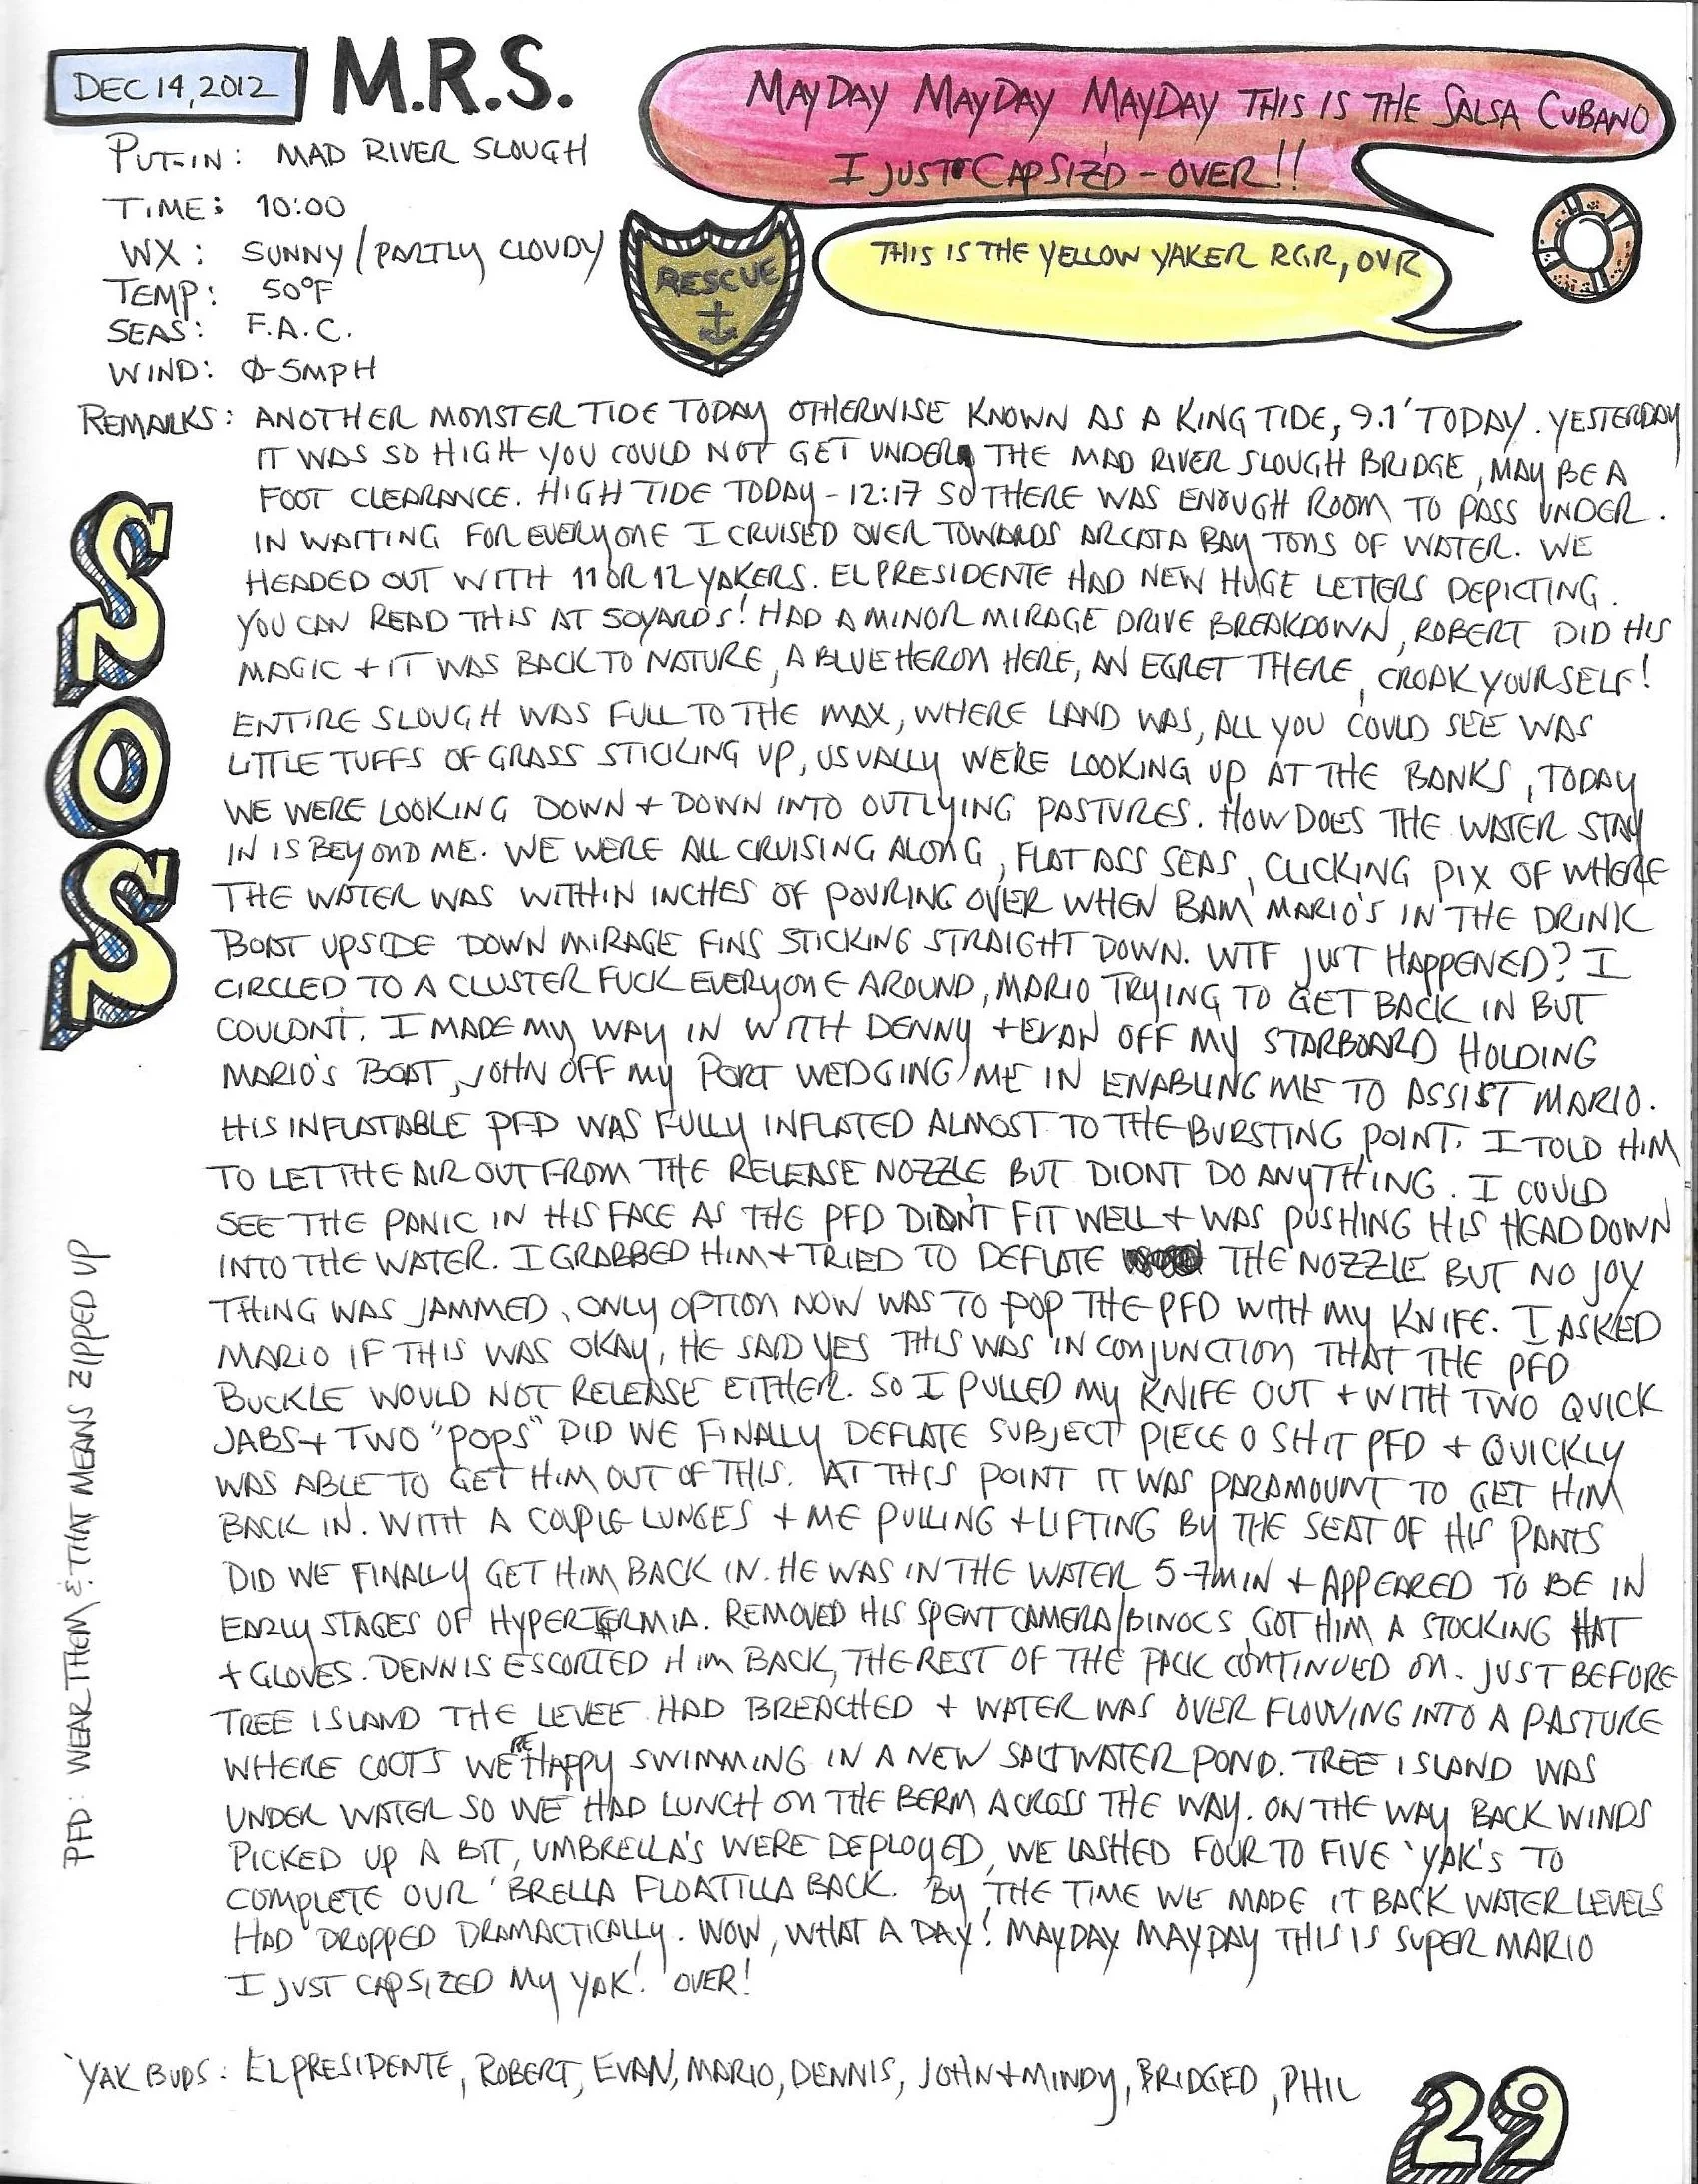 DEC 14, 2012
M.R.S.
MAYDAY MAYDAY MAYDAY THIS IS THE SALSA CUBANO
I JUST CAPSIZ'D - OVER!!
PUT-IN: MAD RIVER SLOUGH
TIME: 10:00
WX: SUNNY/PARTLY CLOUDY
TEMP: 50°F
SEAS: F.A.C.
WIND: 0-5MPH
RESCUE
THIS IS THE YELLOW YAKER RGR, OVR
REMARKS: ANOTHER MONSTER TIDE TODAY OTHERWISE KNOWN AS A KING TIDE, 9.1' TODAY. YESTERDAY
IT WAS SO HIGH YOU COULD NOT GET UNDER THE MAD RIVER SLOUGH BRIDGE, MAY BE A
FOOT CLEARANCE. HIGH TIDE TODAY - 12:17 SO THERE WAS ENOUGH ROOM TO PASS UNDER.
IN WAITING FOR EVERYONE I CRUISED OVER TOWARDS ARCATA BAY TONS OF WATER. WE
HEADED OUT WITH 11 OR 12 YAKERS. EL PRESIDENTE HAD NEW HUGE LETTERS DEPICTING.
YOU CAN READ THIS AT 50YARDS! HAD A MINOR MIRAGE DRIVE BREAKDOWN, ROBERT DID HIS
MAGIC + IT WAS BACK TO NATURE, A BLUE HERON HERE, AN EGRET THERE, CROAK YOURSELF!
ENTIRE SLOUGH WAS FULL TO THE MAX, WHERE LAND WAS, ALL YOU COULD SEE WAS
LITTLE TUFFS OF GRASS STICKING UP, USUALLY WE'RE LOOKING UP AT THE BANKS, TODAY
WE WERE LOOKING DOWN + DOWN INTO OUTLYING PASTURES. HOW DOES THE WATER STAY
IN IS BEYOND ME. WE WERE ALL CRUISING ALONG, FLAT ASS SEAS, CLICKING PIX OF WHERE
THE WATER WAS WITHIN INCHES OF POURING OVER WHEN BAM MARIO'S IN THE DRINK
BOAT UPSIDE DOWN MIRAGE FINS STICKING STRAIGHT DOWN. WTF JUST HAPPENED? I
CIRCLED TO A CLUSTER FUCK EVERYONE AROUND, MARIO TRYING TO GET BACK IN BUT
COULDNT. I MADE MY WAY IN WITH DENNY + EVAN OFF MY STARBOARD HOLDING
MARIO'S BOAT, JOHN OFF MY PORT WEDGING ME IN ENABLING ME TO ASSIST MARIO.
HIS INFLATABLE PFD WAS FULLY INFLATED ALMOST TO THE BURSTING POINT. I TOLD HIM
TO LET THE AIR OUT FROM THE RELEASE NOZZLE BUT DIDNT DO ANYTHING. I COULD
SEE THE PANIC IN HIS FACE AS THE PFD DIDN'T FIT WELL + WAS PUSHING HIS HEAD DOWN
INTO THE WATER. I GRABBED HIM + TRIED TO DEFLATE THE NOZZLE BUT NO JOY
THING WAS JAMMED. ONLY OPTION NOW WAS TO POP THE PFD WITH MY KNIFE. I ASKED
MARIO IF THIS WAS OKAY, HE SAID YES THIS WAS IN CONJUNCTION THAT THE PFD
BUCKLE WOULD NOT RELEASE EITHER. SO I PULLED MY KNIFE OUT + WITH TWO QUICK
JABS + TWO "POPS" DID WE FINALLY DEFLATE SUBJECT PIECE O SHIT PFD + QUICKLY
WAS ABLE TO GET HIM OUT OF THIS. AT THIS POINT IT WAS PARAMOUNT TO GET HIM
BACK IN. WITH A COUPLE LUNGES + ME PULLING + LIFTING BY THE SEAT OF HIS PANTS
DID WE FINALLY GET HIM BACK IN. HE WAS IN THE WATER 5-7MIN + APPEARED TO BE IN
EARLY STAGES OF HYPERTERMIA. REMOVED HIS SPENT CAMERA/BINOCS GOT HIM A STOCKING HAT
+ GLOVES. DENNIS ESCORTED HIM BACK, THE REST OF THE PACK CONTINUED ON. JUST BEFORE
TREE ISLAND THE LEVEE HAD BREACHED + WATER WAS OVER FLOWING INTO A PASTURE
WHERE COOTS WERE HAPPY SWIMMING IN A NEW SALTWATER POND. TREE ISLAND WAS
UNDER WATER SO WE HAD LUNCH ON THE BERM ACROSS THE WAY. ON THE WAY BACK WINDS
PICKED UP A BIT, UMBRELLA'S WERE DEPLOYED, WE LASHED FOUR TO FIVE 'YAK'S TO
COMPLETE OUR 'BRELLA FLOATILLA BACK. BY THE TIME WE MADE IT BACK WATER LEVELS
HAD DROPPED DRAMACTICALLY. WOW, WHAT A DAY! MAYDAY MAYDAY THIS IS SUPER MARIO
I JUST CAPSIZED MY YAK! OVER!
SOS
PFD: WEAR THEM & THAT MEANS ZIPPED UP
'YAK BUDS: EL PRESIDENTE, ROBERT, EVAN, MARIO, DENNIS, JOHN + MINDY, BRIDGED, PHIL
29